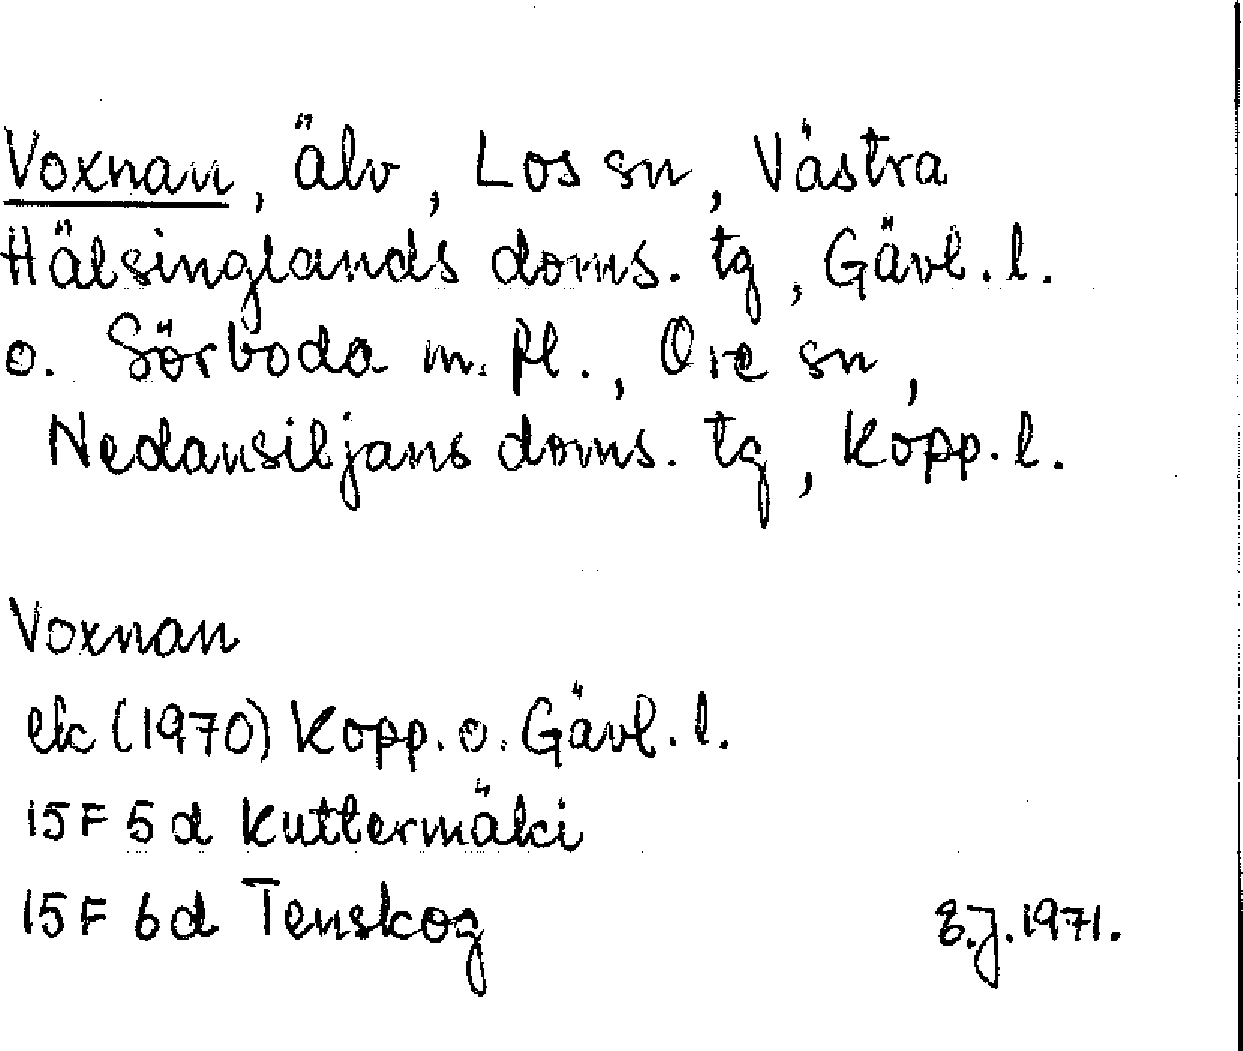 Voxnan, älv, Los sn, Västra
Hälsinglands doms. tg, Gävl. l.
o. Sörboda m. fl., Ore sn,
Nedansiljans doms. tg, Kopp. l.
Voxnan
ek (1970) Kopp. o. Gävl. l.
15F 5d Kuttermäki
15F 6d Tenskog
1971.